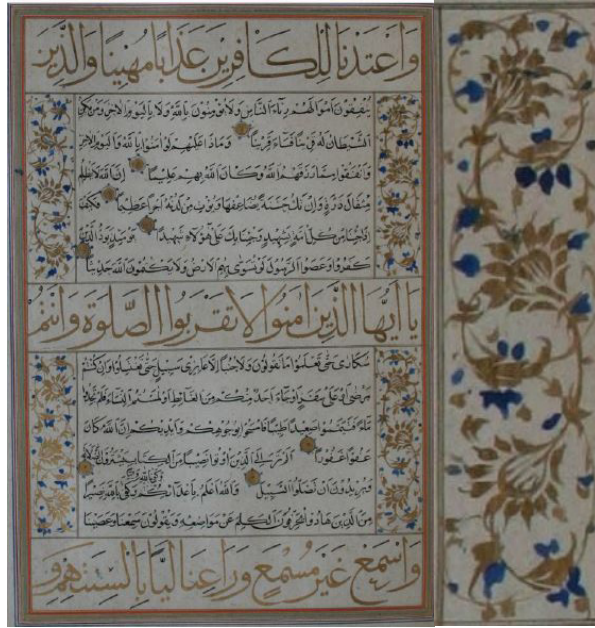 وَاَعْتَدْنَا لِلْكَافِرِينَ عَذَابًا مُهِينًا وَالَّذِينَ
ينفقون اموالهم رئاء الناس ولا يؤمنون بالله ولا باليوم الاخر ومن يكن
الشيطان له قرينا فساء قرينا وماذا عليهم لو امنوا بالله واليوم الاخر
وانفقوا مما رزقهم الله وكان الله بهم عليما ان الله لا يظلم
مثقال ذرة وان تك حسنة يضاعفها ويؤت من لدنه اجرا عظيما فكيف
اذا جئنا من كل امة بشهيد وجئنا بك على هؤلاء شهيدا يومئذ يود الذين
كفروا وعصوا الرسول لو تسوى بهم الارض ولا يكتمون الله حديثا
يَا اَيُّهَا الَّذِينَ اٰمَنُوا لَا تَقْرَبُوا الصَّلٰوةَ وَاَنْتُمْ
سكارى حتى تعلموا ما تقولون ولا جنبا الا عابرى سبيل حتى تغتسلوا وان كنتم
مرضى او على سفر او جاء احد منكم من الغائط او لمستم النساء فلم تجدوا
ماء فتيمموا صعيدا طيبا فامسحوا بوجوهكم وايديكم ان الله كان
عفوا غفورا الم تر الى الذين اوتوا نصيبا من الكتاب يشترون الضلالة
وكفى بالله وليا
ويريدون ان تضلوا السبيل والله اعلم باعدائكم وكفى بالله نصيرا
من الذين هادوا يحرفون الكلم عن مواضعه ويقولون سمعنا وعصينا
وَاسْمَعْ غَيْرَ مُسْمَعٍ وَرَاعِنَا لَيًّا بِاَلْسِنَتِهِمْ وَ